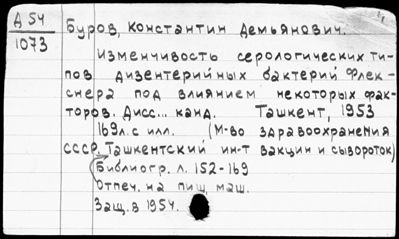 Д 54
1073
Буров, Константин Демьянович.
Изменчивость серологических ти-
пов дизентерийных бактерий Флек-
снера под влиянием некоторых фак-
торов. Дисс... канд. Ташкент, 1953
169л. с илл. (М-во здравоохранения
СССР. Ташкентский ин-т вакцин и сывороток)
Библиогр. л. 152-169
Отпеч. на пиш. маш.
Защ. в 1954.